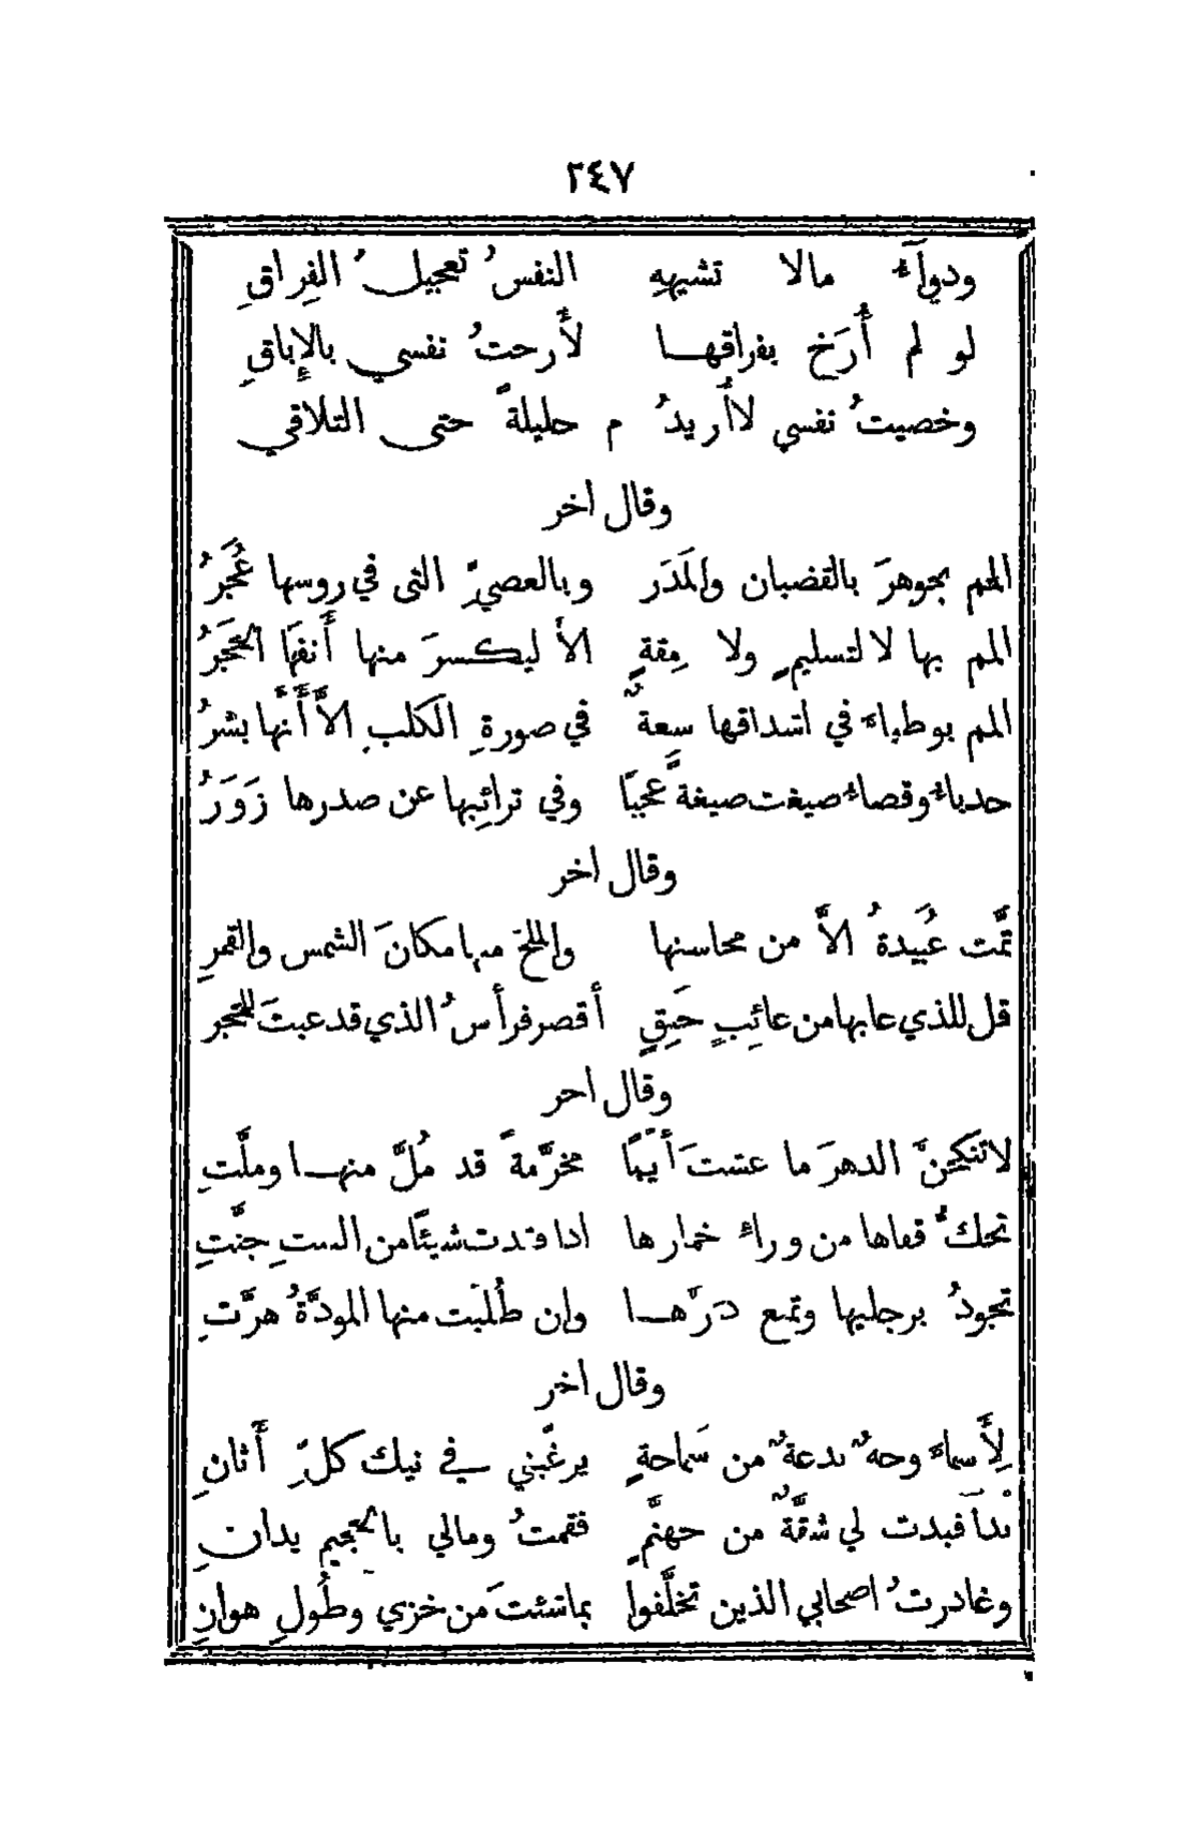 ٢٤٧
ودوآء مالا تشهيه النفسُ تعجيلُ الفِراقِ
لو لم أُرَخ بفراقها لأَرحتُ نفسي بالإِباقِ
وخصيتُ نفسي لاأُريدُ م حليلةً حتى التلاقي
وقال اخر
المم بجوهرَ بالقضبان والمَدَر وبالعصيِّ التى في روسها عُجَرُ
المم بها لا لتسليمٍ ولا مِقةٍ الاَّ ليكسرَ منها أَنفَها الحَجَرُ
المم بوطباءَ في اشداقها سعةٌ في صورةِ الكلبِ الاَّ أَنَّها بشرُ
حدباءُ وقصاءُ صيغت صيغةً عجبًا وفي ترائِبها عن صدرها زَوَرُ
وقال اخر
تمَّت عُبَيدةُ الاَّ من محاسنها والملحَ منها مكانَ الشمس والقمرِ
قل للذي عابها من عائِبٍ حَنِقٍ أَقصر فرأسُ الذي قد عبتَ للحجر
وقال احر
لاتنكحِنَّ الدهرَ ما عشتَ أَيِّمًا مخرَّمةً قد مُلَّ منهـا وملَّتِ
تحكُّ قفاها من وراءِ خمارها اذا فقدت شيئًا من البيتِ جنَّتِ
تجودُ برجليها وتمنع دَرَّهـا وإن طُلبَت منها المودَّةُ هرَّتِ
وقال اخر
لِأَسماءَ وجهٌ بدعةٌ من سَماحةٍ يرغّبني في نيك كلِّ أَتانِ
بدأ فبدت لي شقَّةٌ من جهنَّمٍ فقمتُ ومالي بالجحيم يدانِ
وغادرتُ اصحابي الذين تخلَّفوا بماشئتَ من خزي وطُولِ هوانِ